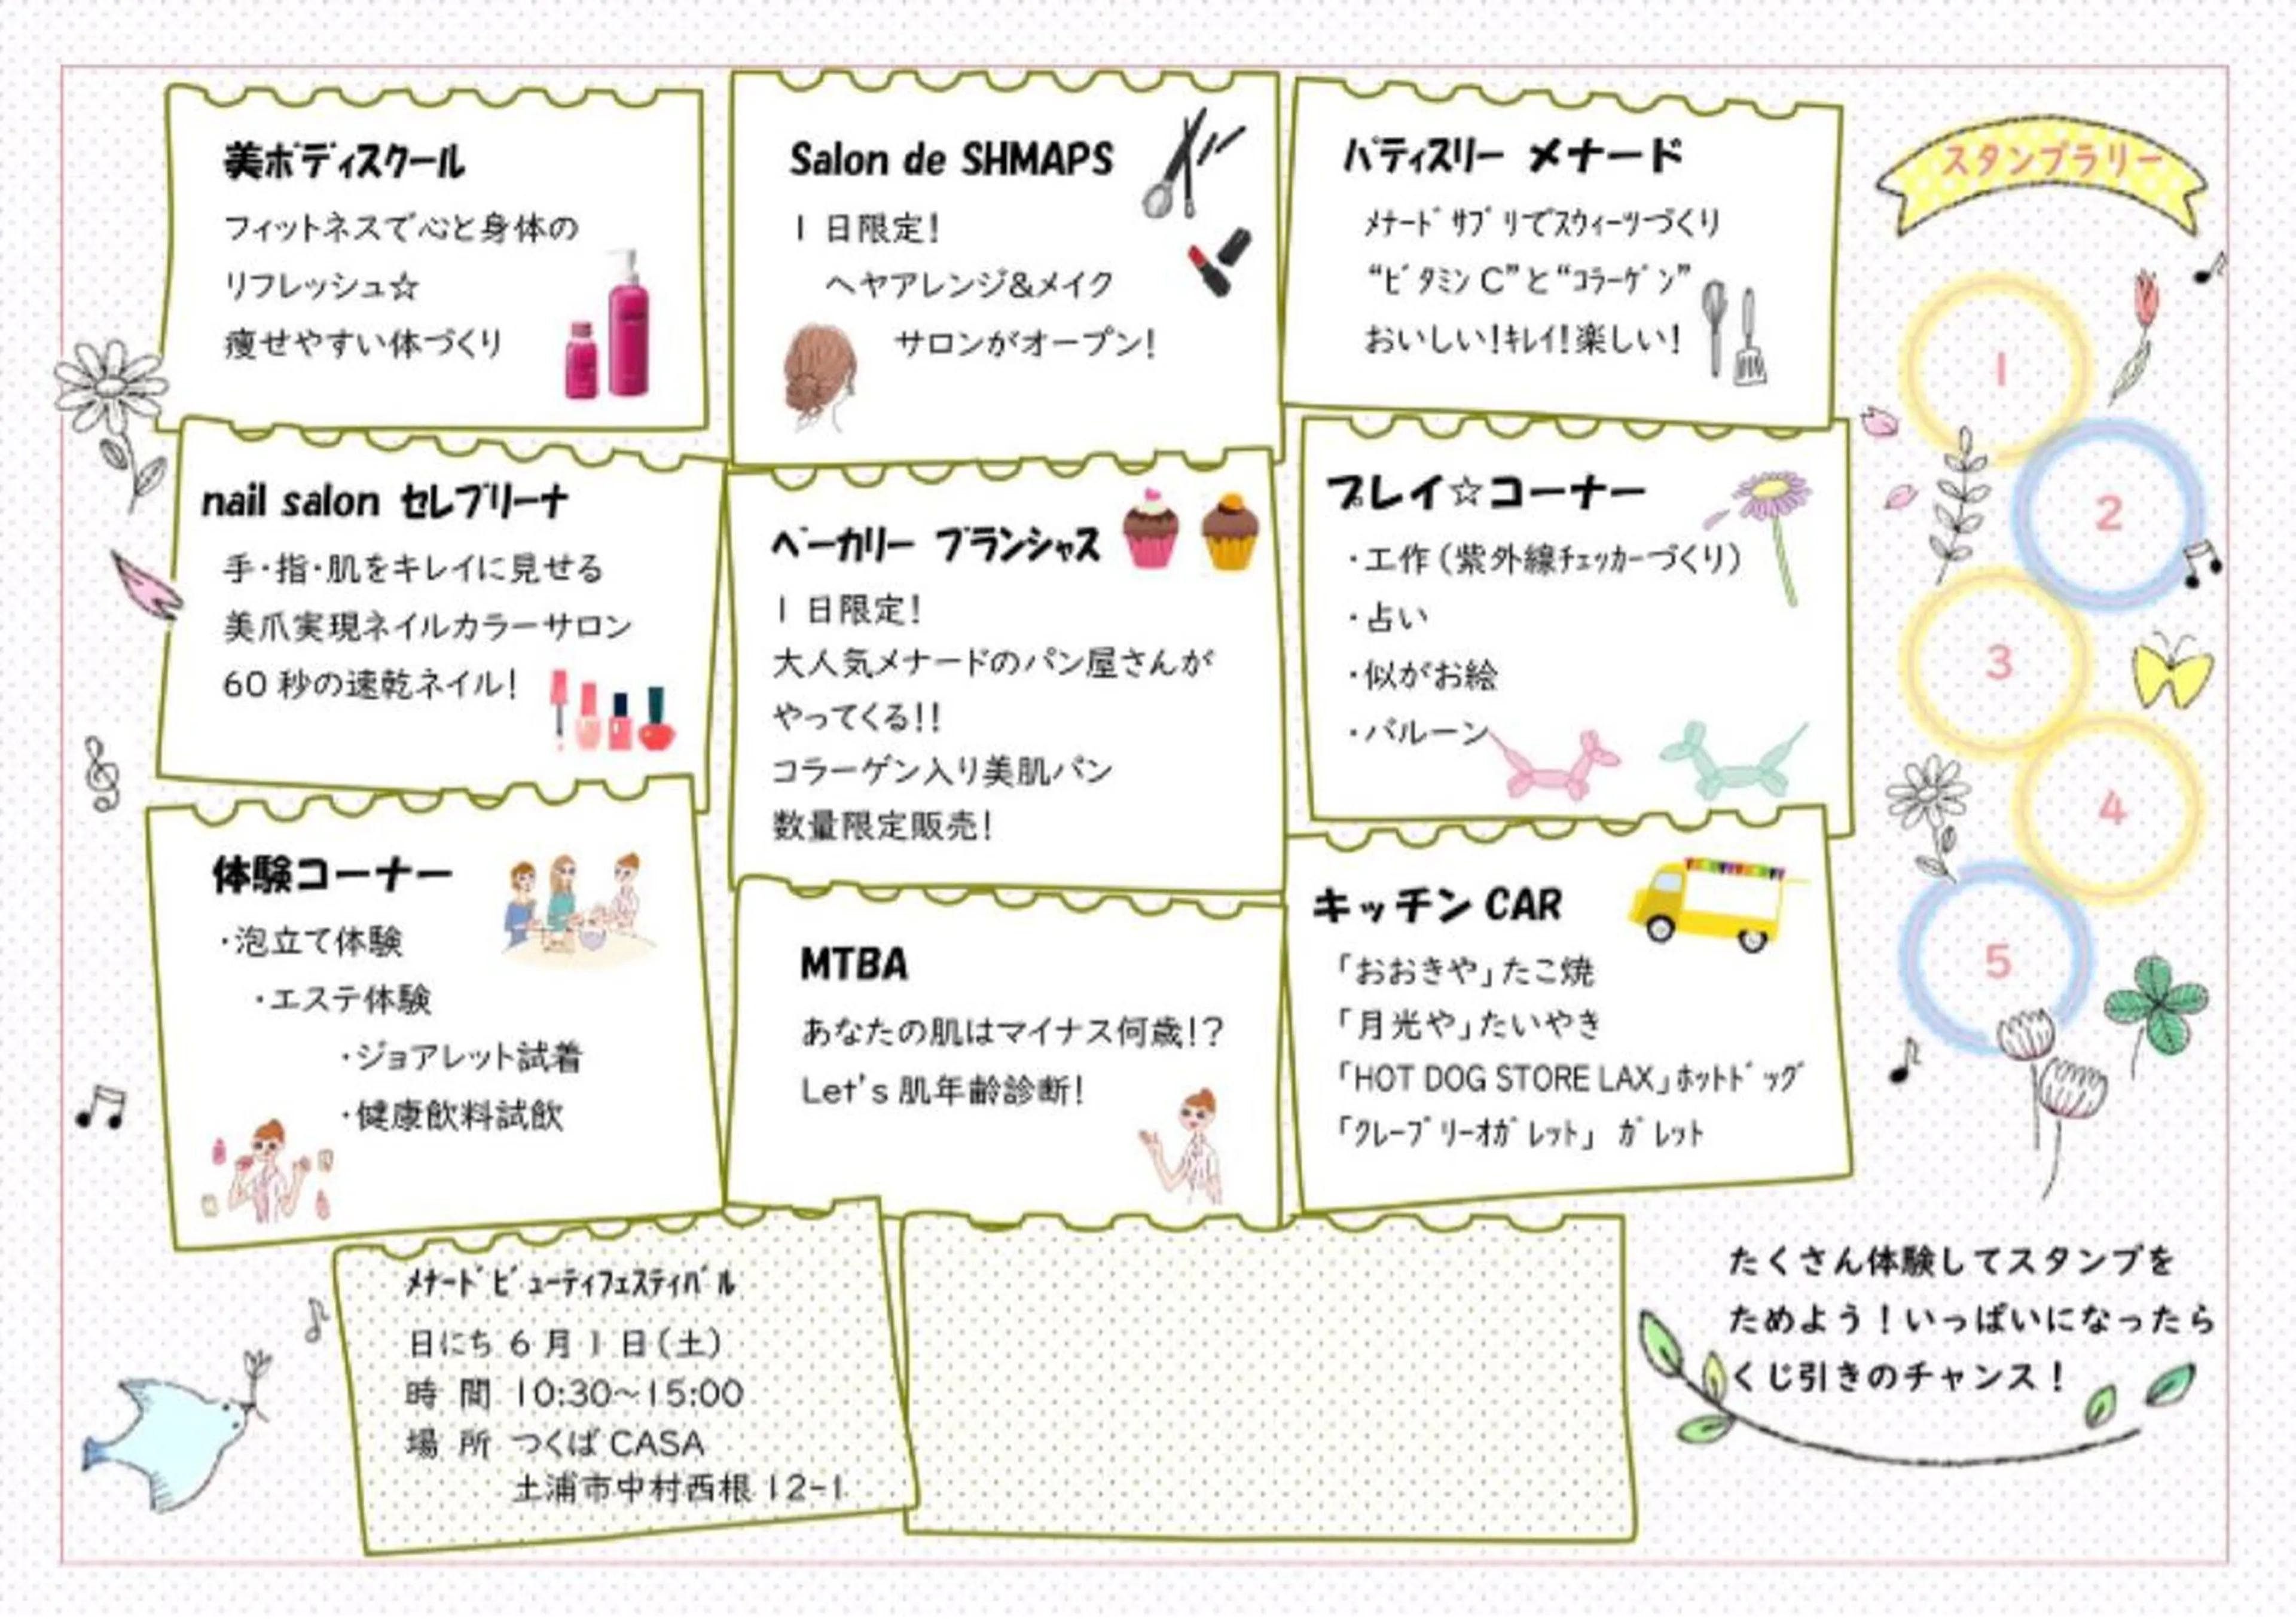 美ボディスクール
フィットネスで心と身体の
リフレッシュ☆
痩せやすい体づくり
Salon de SHMAPS
1 日限定!
ヘヤアレンジ&メイク
サロンがオープン!
パティスリー メナード
メナードサプリでスウィーツづくり
“ビタミンC”と“コラーゲン”
おいしい!キレイ!楽しい!
nail salon セレブリーナ
手・指・肌をキレイに見せる
美爪実現ネイルカラーサロン
60 秒の速乾ネイル!
ベーカリー ブランシャス
1 日限定!
大人気メナードのパン屋さんが
やってくる!!
コラーゲン入り美肌パン
数量限定販売!
プレイ☆コーナー
・工作(紫外線チェッカーづくり)
・占い
・似がお絵
・バルーン
体験コーナー
・泡立て体験
・エステ体験
・ジョアレット試着
・健康飲料試飲
MTBA
あなたの肌はマイナス何歳!?
Let's 肌年齢診断!
キッチン CAR
「おおきや」たこ焼
「月光や」たいやき
「HOT DOG STORE LAX」ホットドッグ
「クレープリーオガレット」 ガレット
メナードビューティフェスティバル
日にち 6 月 1 日(土)
時 間 10:30~15:00
場 所 つくば CASA
土浦市中村西根 12-1
スタンプラリー
1
2
3
4
5
たくさん体験してスタンプを
ためよう!いっぱいになったら
くじ引きのチャンス!